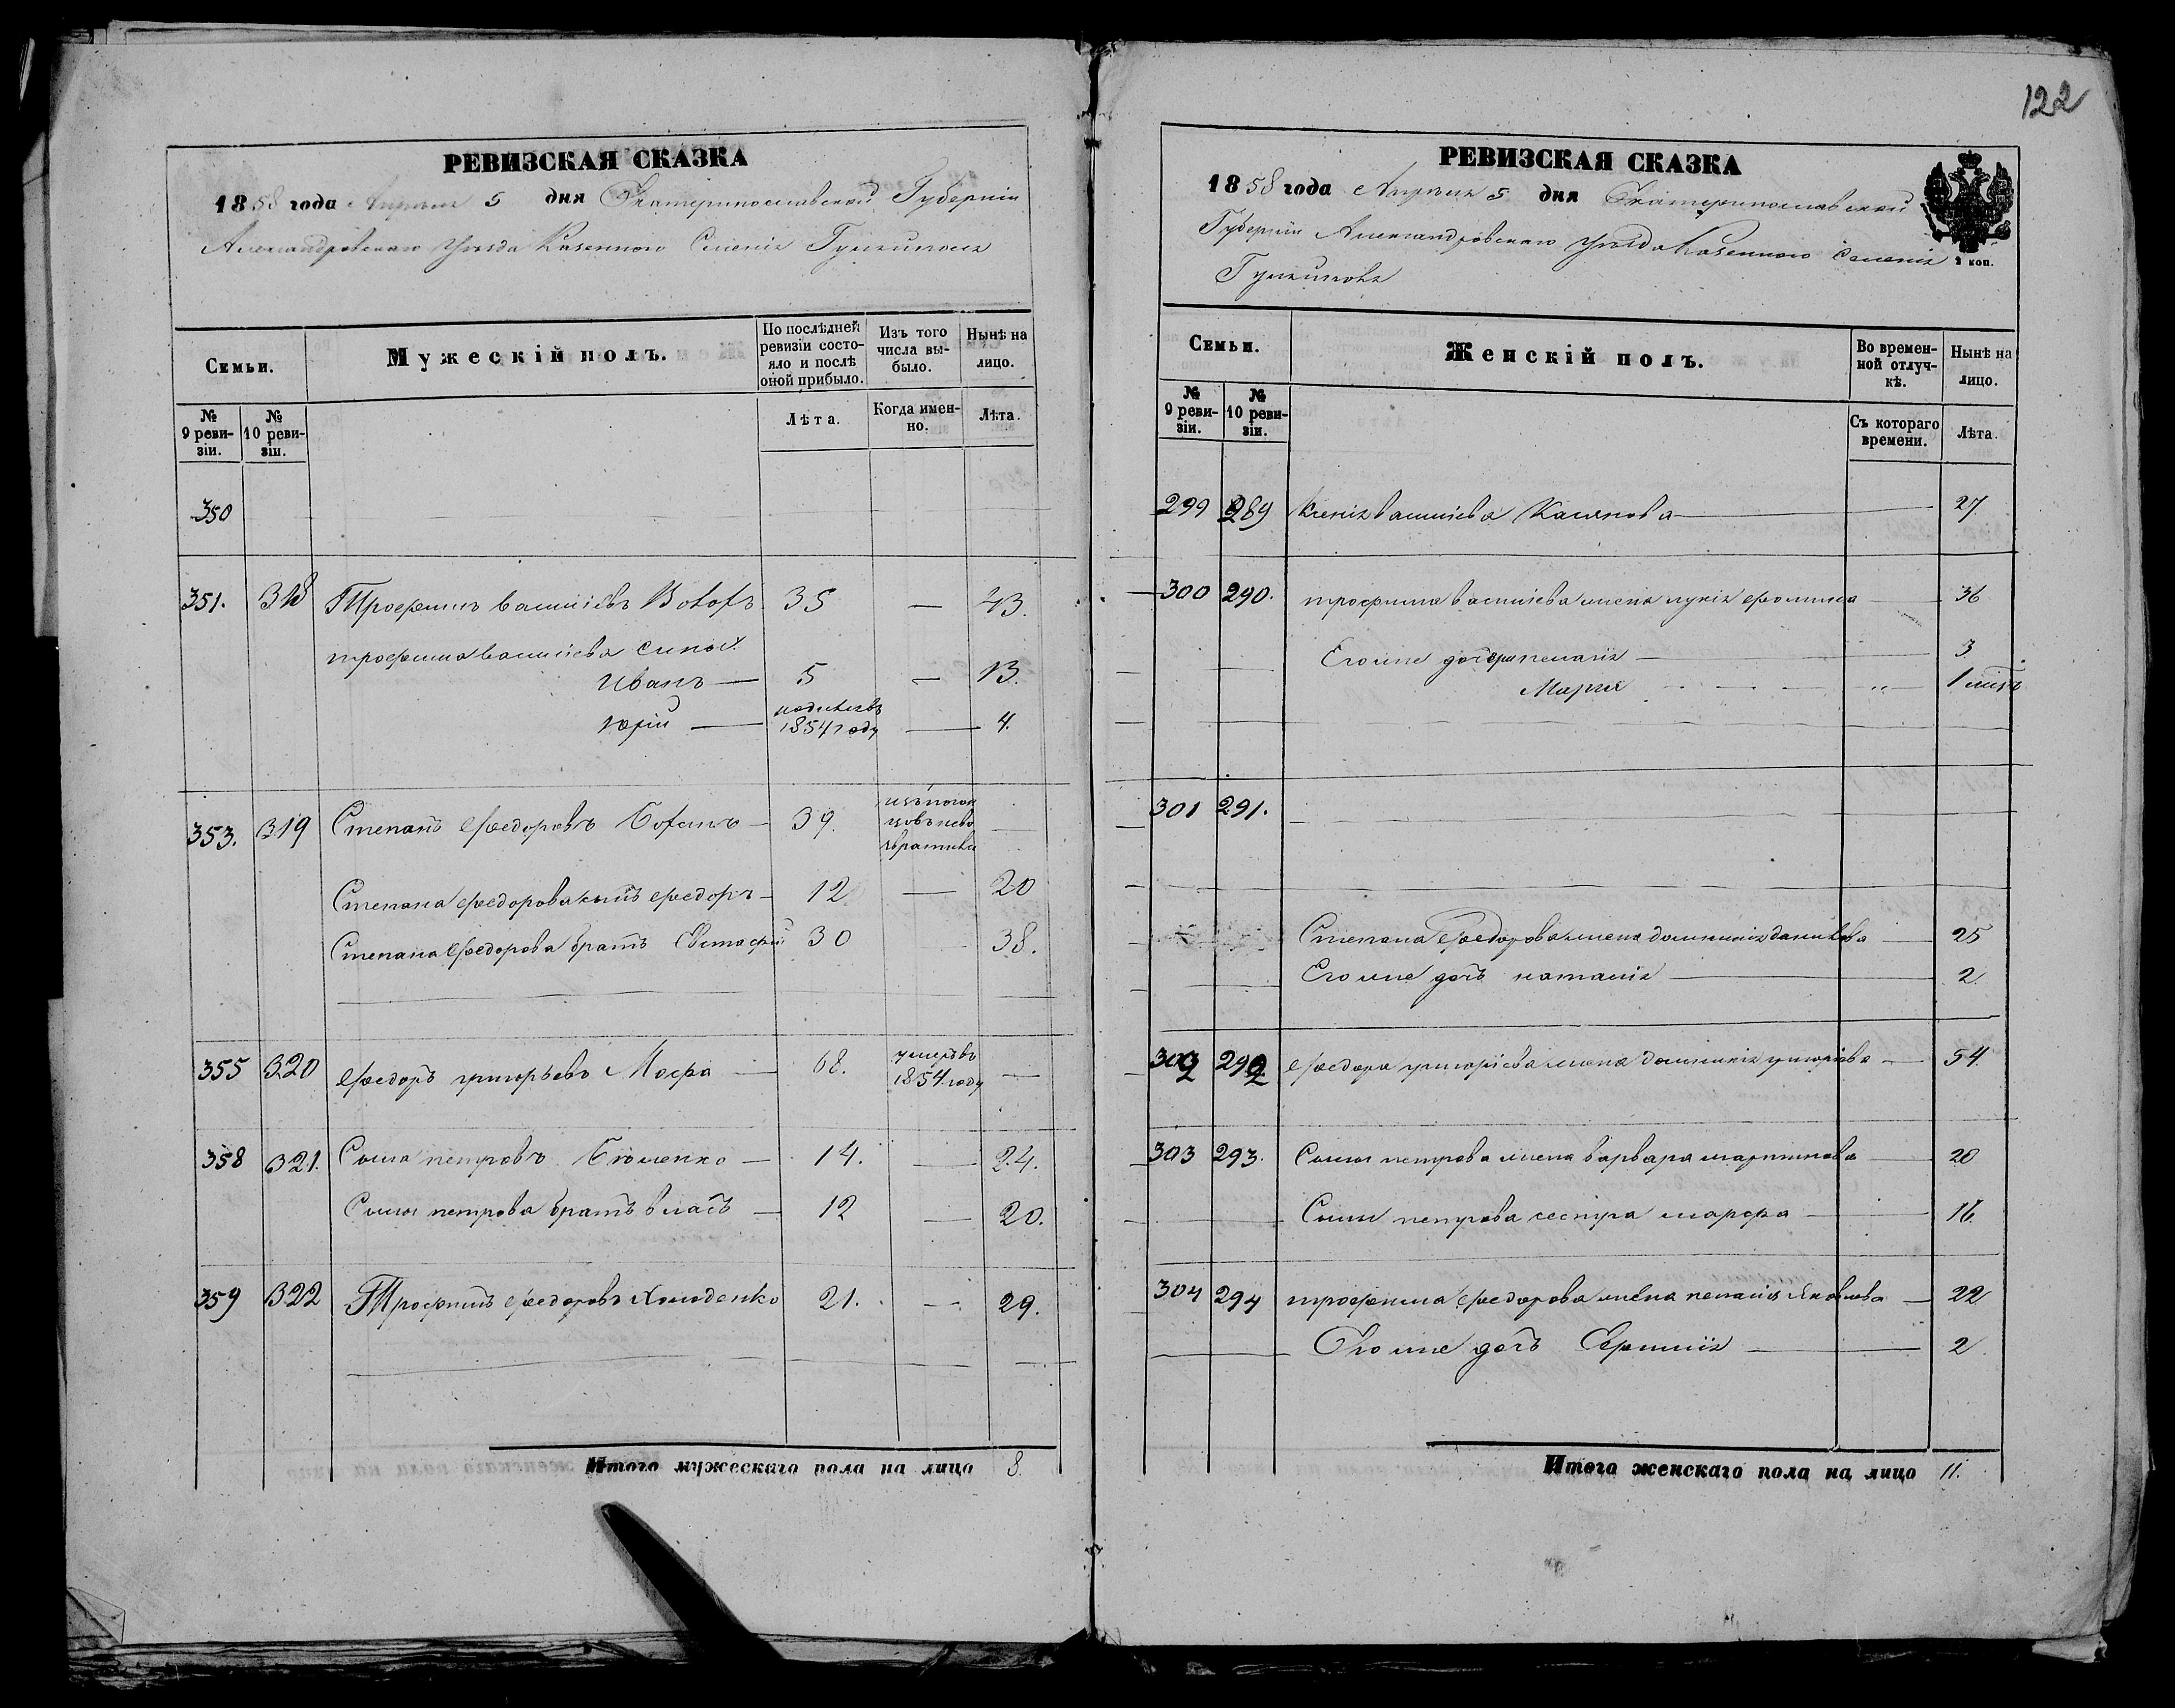 122
РЕВИЗСКАЯ СКАЗКА
1858 года Апреля 5 дня Екатеринославской Губерніи
Александровскаго Уезда Казенного Селенія Гуляйполя
Семьи.
Мужескій полъ.
По послѣдней ревизіи состояло и послѣ оной прибыло.
Изъ того числа выбыло.
Нынѣ на лицо.
№ 9 ревизіи.
№ 10 ревизіи.
Лѣта.
Когда именно.
Лѣта.
350
351. 318 Трофимъ васильевъ 35 — 43.
трофима васильева сыны
Иванъ — 5 — 13.
юрій — родился въ 1854 году — 4.
353. 319 Степанъ федоровъ — 39. —
Степана федорова сынъ федоръ — 12 — 20
Степана федорова братъ Евстафій 30 38.
355 320 федоръ григорьевъ — 68. умеръ въ 1854 году —
358 321. Сыла петровъ — 14. — 24.
Силы петрова братъ власъ — 12 — 20.
359 322 Трофимъ федоровъ Холоденко 21. — 29.
Итого мужескаго пола на лицо 8.
РЕВИЗСКАЯ СКАЗКА
1858 года Апреля 5 дня Екатеринославской
Губерніи Александровскаго Уезда Казенного Селенія
Гуляйполя
2 коп.
Семьи.
Женскій полъ.
Во временной отлучкѣ.
Нынѣ на лицо.
№ 9 ревизіи.
№ 10 ревизіи.
Съ котораго времени.
Лѣта.
299 289 васильева Касянова — 27
300 290. трофима васильева жена лукія фомина — 36
Его же дочери пелагія — 3
Марія — 1
301 291.
Степана федорова жена домникія данилова — 25
Его же дочь наталія — 2.
302 292 федора григоріева жена домникія григоріева — 54.
303 293. Силы петрова жена варвара мартинова 20
Силы петрова сестра марфа — 16.
304 294 трофима федорова жена пелагія Яковлева — 22
Его же дочь — 2
Итого женскаго пола на лицо 11.